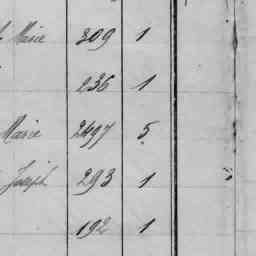 Marie 309 1
236 1
Marie 2497 5
Joseph 293 1
192 1